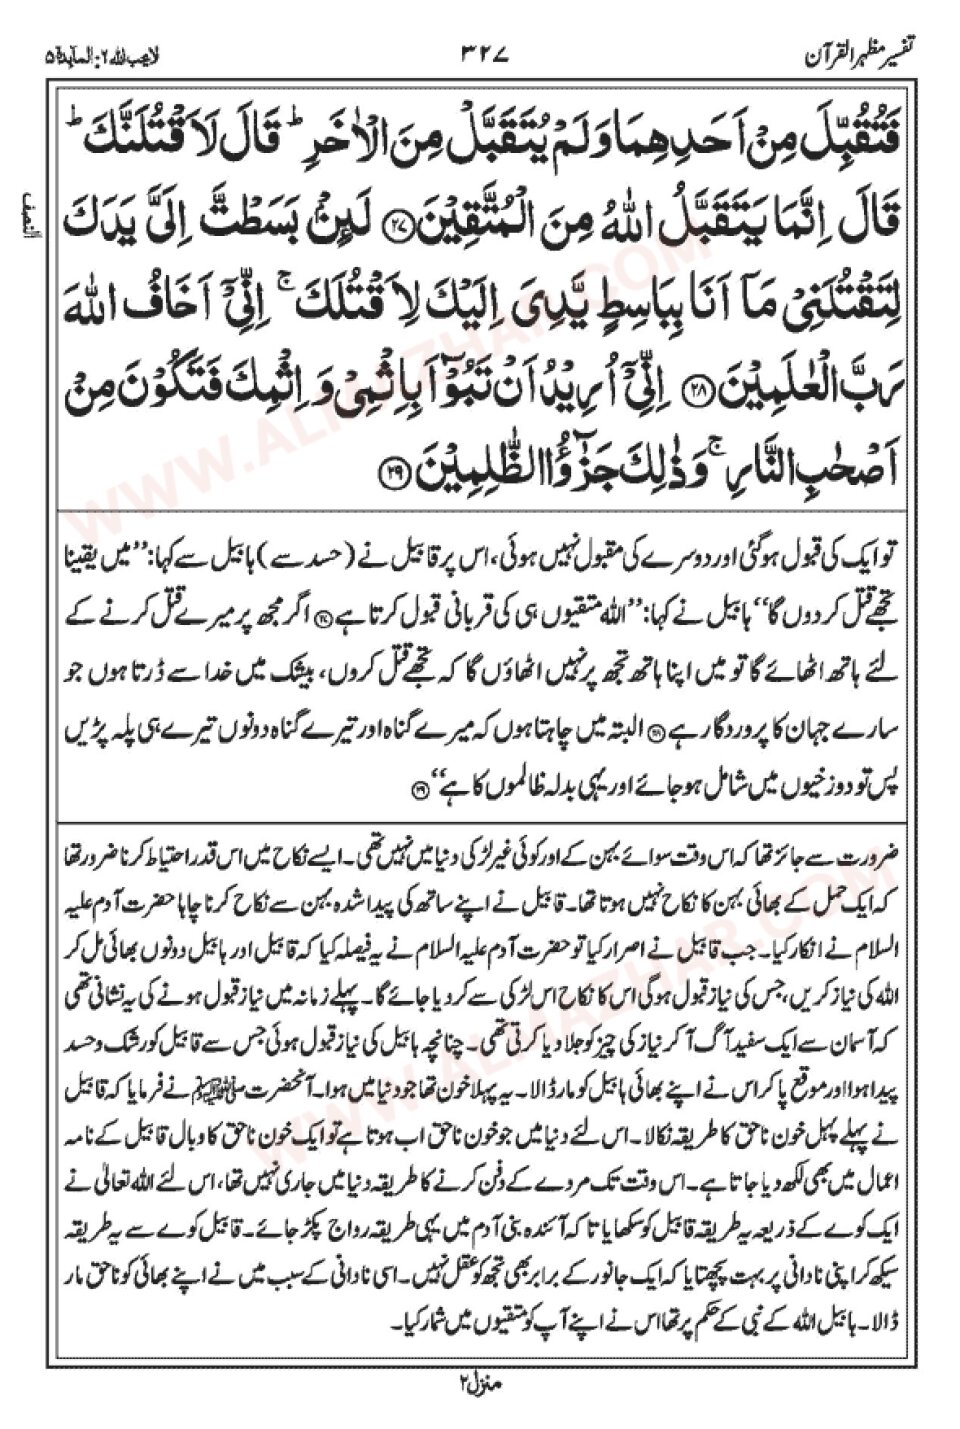 تفسیر مظہر القرآن
۳۲۷
لا یحب اللہ ۶: المآئدۃ ۵
فَتُقُبِّلَ مِنْ اَحَدِهِمَا وَلَمْ يُتَقَبَّلْ مِنَ الْاٰخَرِ ؕ قَالَ لَاَقْتُلَنَّكَ ؕ
قَالَ اِنَّمَا يَتَقَبَّلُ اللّٰهُ مِنَ الْمُتَّقِيْنَ ﴿۲۷﴾ لَئِنْۢ بَسَطْتَّ اِلَيَّ يَدَكَ
النصف
لِتَقْتُلَنِيْ مَاۤ اَنَا بِبَاسِطٍ يَّدِيَ اِلَيْكَ لِاَقْتُلَكَ ۚ اِنِّيْۤ اَخَافُ اللّٰهَ
رَبَّ الْعٰلَمِيْنَ ﴿۲۸﴾ اِنِّيْۤ اُرِيْدُ اَنْ تَبُوْٓاَ بِاِثْمِيْ وَ اِثْمِكَ فَتَكُوْنَ مِنْ
اَصْحٰبِ النَّارِ ۚ وَذٰلِكَ جَزٰٓؤُا الظّٰلِمِيْنَ ﴿۲۹﴾
تو ایک کی قبول ہوگئی اور دوسرے کی مقبول نہیں ہوئی، اس پر قابیل نے (حسد سے) ہابیل سے کہا: ’’میں یقیناً
تجھے قتل کردوں گا‘‘ ہابیل نے کہا: ’’اللہ متقیوں ہی کی قربانی قبول کرتا ہے ﴿۲۷﴾ اگر مجھ پر میرے قتل کرنے کے
لئے ہاتھ اٹھائے گا تو میں اپنا ہاتھ تجھ پر نہیں اٹھاؤں گا کہ تجھے قتل کروں، بیشک میں خدا سے ڈرتا ہوں جو
سارے جہان کا پروردگار ہے ﴿۲۸﴾ البتہ میں چاہتا ہوں کہ میرے گناہ اور تیرے گناہ دونوں تیرے ہی پلہ پڑیں
پس تو دوزخیوں میں شامل ہوجائے اور یہی بدلہ ظالموں کا ہے‘‘ ﴿۲۹﴾
ضرورت سے جائز تھا کہ اس وقت سوائے بہن کے اور کوئی غیر لڑکی دنیا میں نہیں تھی۔ ایسے نکاح میں اس قدر احتیاط کرنا ضرور تھا
کہ ایک حمل کے بھائی بہن کا نکاح نہیں ہوتا تھا۔ قابیل نے اپنے ساتھ کی پیدا شدہ بہن سے نکاح کرنا چاہا حضرت آدم علیہ
السلام نے انکار کیا۔ جب قابیل نے اصرار کیا تو حضرت آدم علیہ السلام نے یہ فیصلہ کیا کہ قابیل اور ہابیل دونوں بھائی مل کر
اللہ کی نیاز کریں، جس کی نیاز قبول ہوگی اس کا نکاح اس لڑکی سے کر دیا جائے گا۔ پہلے زمانہ میں نیاز قبول ہونے کی یہ نشانی تھی
کہ آسمان سے ایک سفید آگ آکر نیاز کی چیز کو جلا دیا کرتی تھی۔ چنانچہ ہابیل کی نیاز قبول ہوئی جس سے قابیل کو رشک و حسد
پیدا ہوا اور موقع پا کر اس نے اپنے بھائی ہابیل کو مار ڈالا۔ یہ پہلا خون تھا جو دنیا میں ہوا۔ آنحضرت صلی اللہ علیہ وسلم نے فرمایا کہ قابیل
نے پہلے پہل خون ناحق کا طریقہ نکالا۔ اس لئے دنیا میں جو خون ناحق اب ہوتا ہے تو ایک خون ناحق کا وبال قابیل کے نامہ
اعمال میں بھی لکھ دیا جاتا ہے۔ اس وقت تک مردے کے دفن کرنے کا طریقہ دنیا میں جاری نہیں تھا، اس لئے اللہ تعالیٰ نے
ایک کوے کے ذریعہ یہ طریقہ قابیل کو سکھایا تا کہ آئندہ بنی آدم میں یہی طریقہ رواج پکڑ جائے۔ قابیل کوے سے یہ طریقہ
سیکھ کر اپنی نادانی پر بہت پچھتایا کہ ایک جانور کے برابر بھی تجھ کو عقل نہیں۔ اسی نادانی کے سبب میں نے اپنے بھائی کو ناحق مار
ڈالا۔ ہابیل اللہ کے نبی کے حکم پر تھا اس نے اپنے آپ کو متقیوں میں شمار کیا۔
منزل ۲
WWW.ALMAZHAR.COM
WWW.ALMAZHAR.COM